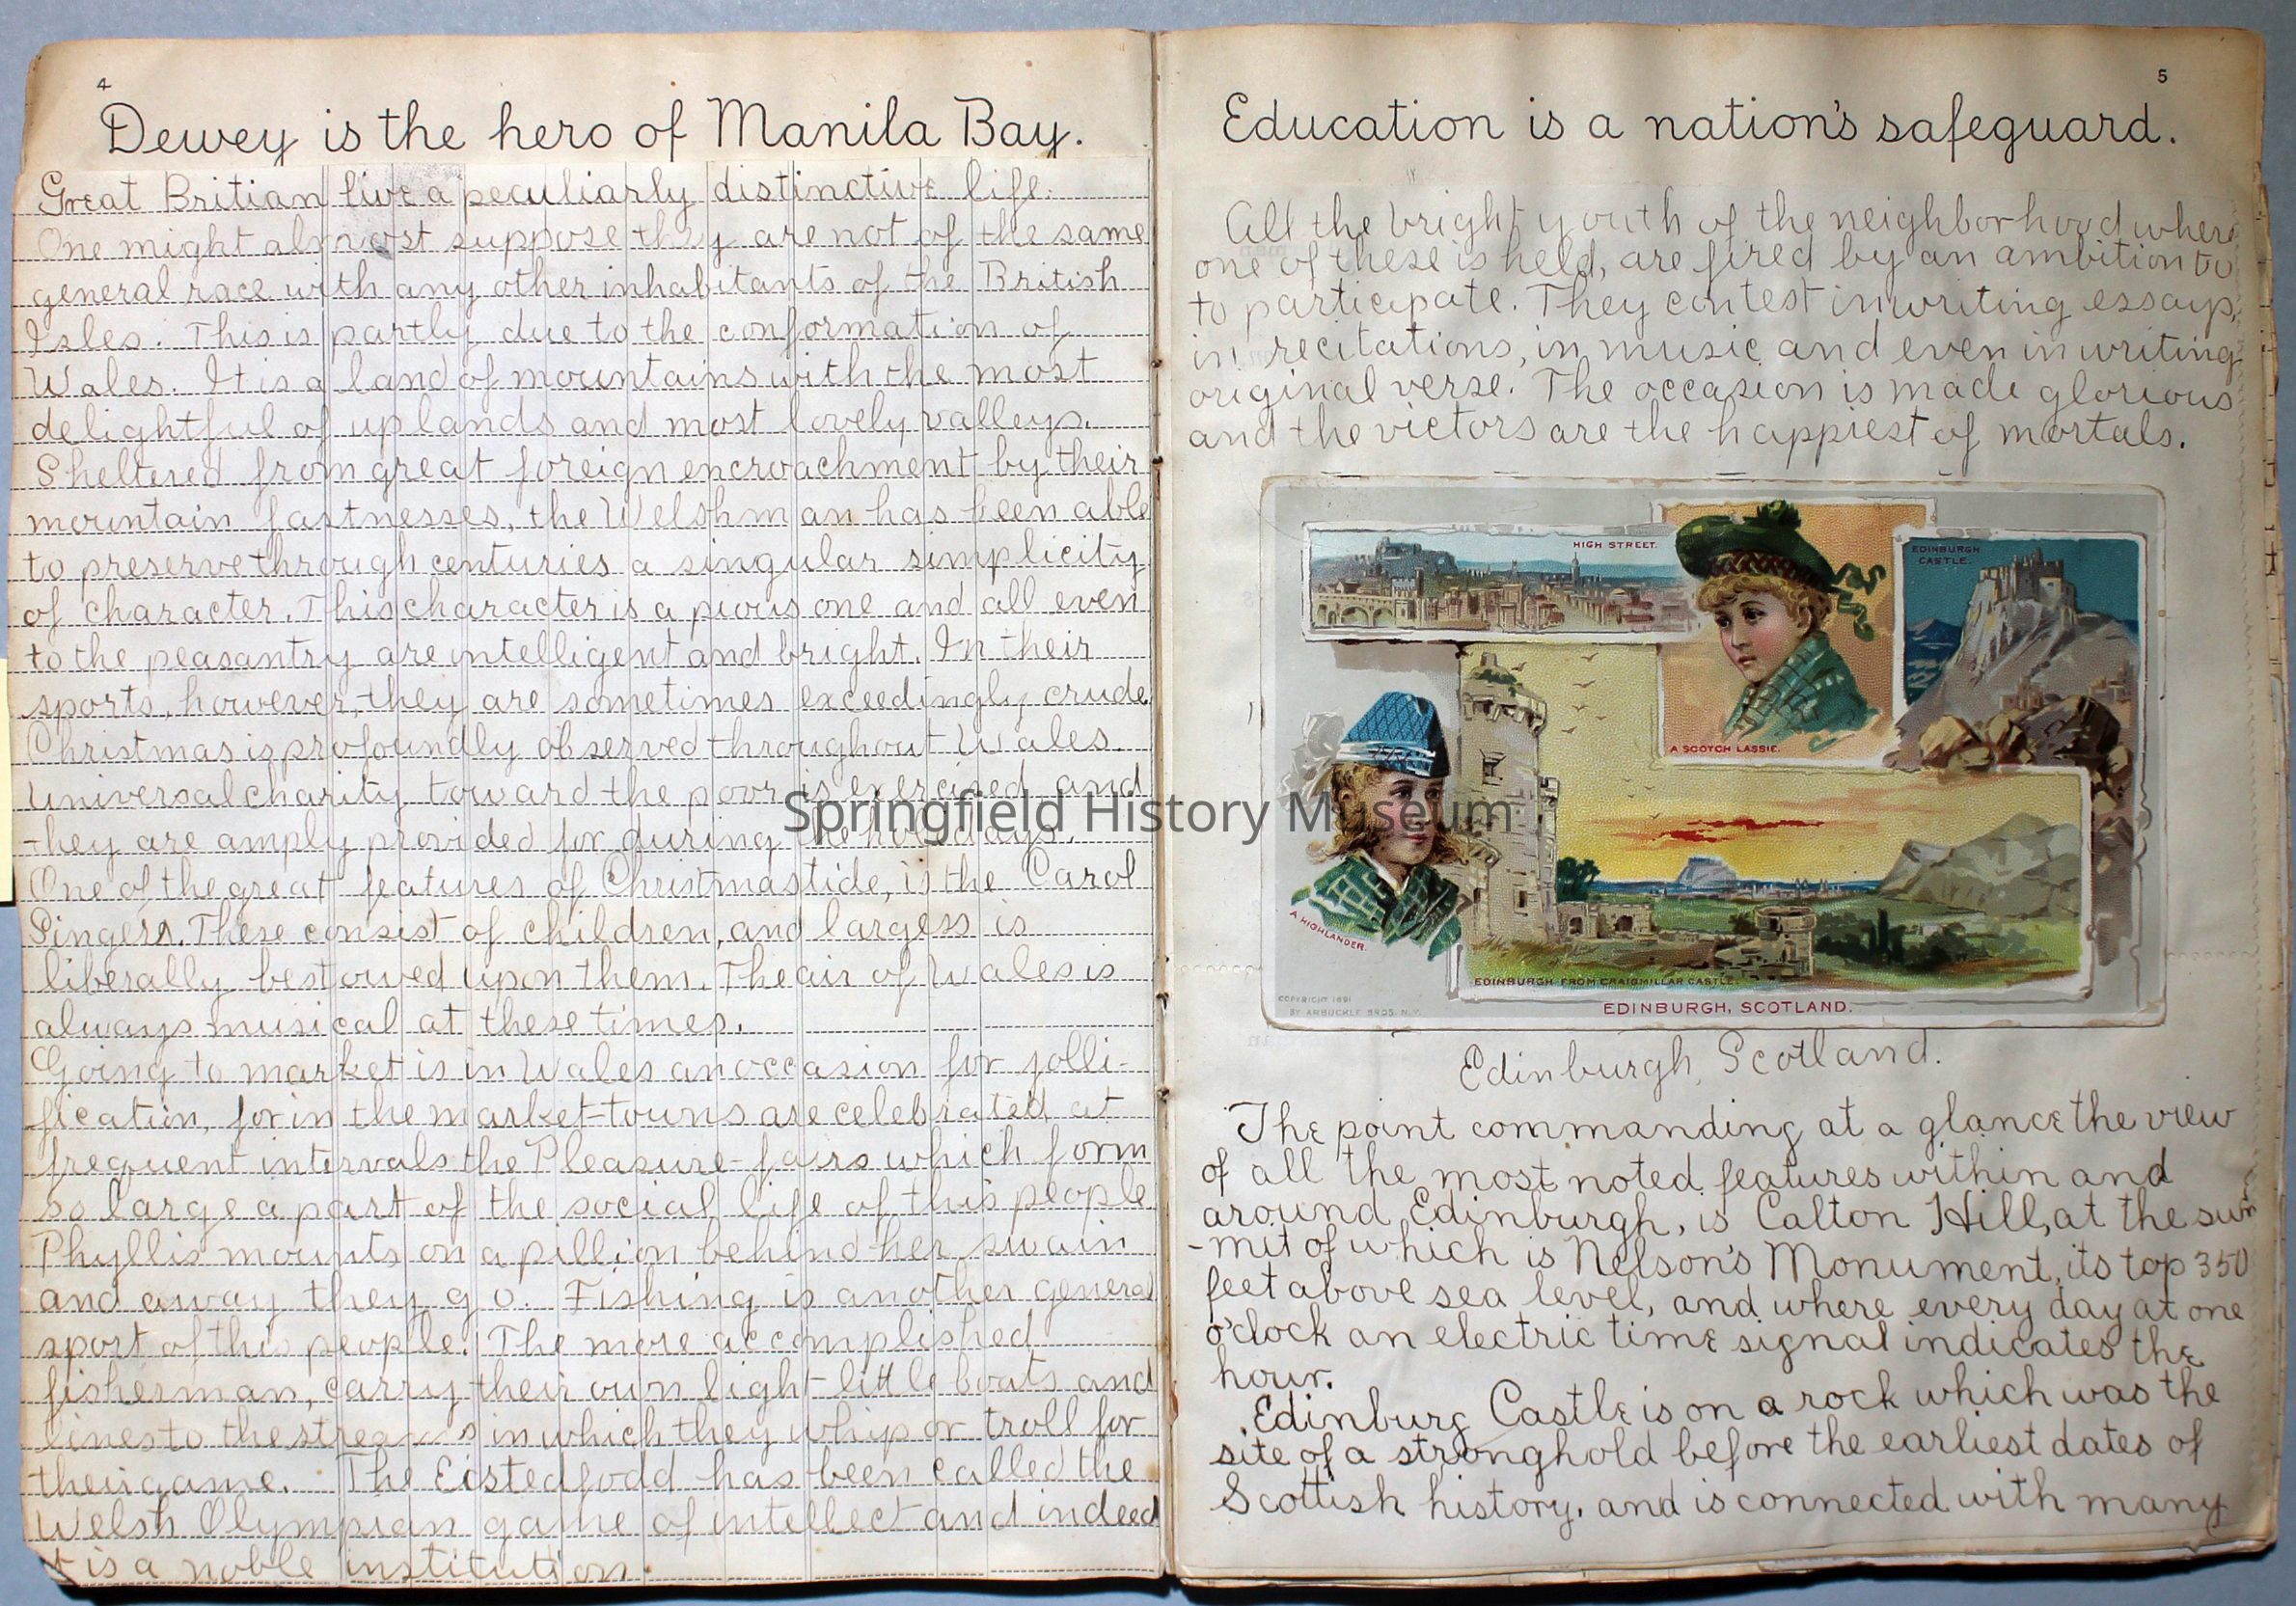 4
Dewey is the hero of Manila Bay.
Great Britian live a peculiarly distinctive life.
One might almost suppose they are not of the same
general race with any other inhabitants of the British
Isles. This is partly due to the conformation of
Wales. It is a land of mountains with the most
delightful of uplands and most lovely valleys.
Sheltered from great foreign encroachment by their
mountain fastnesses, the Welshman has been able
to preserve through centuries a singular simplicity
of character. This character is a pious one and all even
to the peasantry are intelligent and bright. In their
sports, however, they are sometimes exceedingly crude
Christmas is profoundly observed throughout Wales.
Universal charity toward the poor is exercised and
they are amply provided for during the holidays.
One of the great features of Christmastide, is the Carol
Singers. These consist of children, and largess is
liberally bestowed upon them. The air of Wales is
always musical at these times.
Going to market is in Wales an occasion for jolli-
fication, for in the market-towns are celebrated at
frequent intervals the Pleasure-fairs which form
so large a part of the social life of this people.
Phyllis mounts on a pillion behind her swain
and away they go. Fishing is another general
sport of this people. The more accomplished
fisherman, carry their own light little boats and
lines to the streams in which they whip or troll for
their game. The Eistedfodd has been called the
Welsh Olympian game of intellect and indeed
it is a noble institution.
5
Education is a nation's safeguard.
All the bright youth of the neighborhood where
one of these is held, are fired by an ambition to
to participate. They contest in writing essays,
in recitations, in music and even in writing
original verse. The occasion is made glorious
and the victors are the happiest of mortals.
HIGH STREET.
EDINBURGH
CASTLE.
A SCOTCH LASSIE.
A HIGHLANDER.
EDINBURGH FROM CRAIGMILLAR CASTLE.
COPYRIGHT 1891
BY ARBUCKLE BROS. N.Y.
EDINBURGH, SCOTLAND.
Edinburgh, Scotland.
The point commanding at a glance the view
of all the most noted features within and
around Edinburgh, is Calton Hill, at the sum
-mit of which is Nelson's Monument, its top 350
feet above sea level, and where every day at one
o'clock an electric time signal indicates the
hour.
Edinburg Castle is on a rock which was the
site of a stronghold before the earliest dates of
Scottish history, and is connected with many
Springfield History Museum